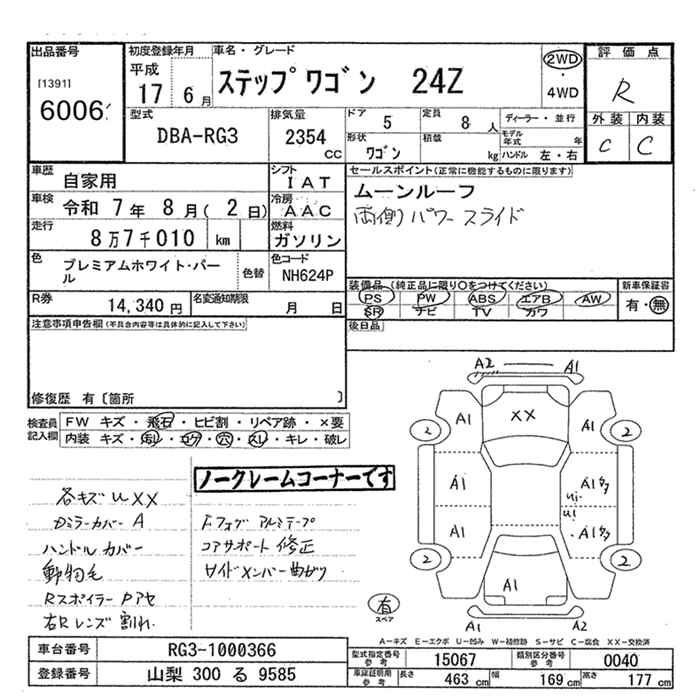 出品番号
[1391]
6006
初度登録年月
平成
17 6月
車名・グレード
ステップワゴン 24Z
2WD
・
4WD
評価点
R
外装 内装
C C
型式
DBA-RG3
排気量
2354
CC
ドア 5
定員 8人
形状
ワゴン
積載 kg
ディーラー・並行
モデル年式 年
ハンドル 左・右
車歴
自家用
シフト
IAT
車検
令和 7年 8月( 2日)
冷房
AAC
走行
8万7千010 km
燃料
ガソリン
色
プレミアムホワイト・パール
色替
色コード
NH624P
R券
14,340 円
名変通知期限
月 日
セールスポイント(正常に機能するものに限ります)
ムーンルーフ
両側パワースライド
装備品(純正品に限り○をつけてください)
PS PW ABS エアB AW
SR ナビ TV カワ
新車保証書
有・無
後日品
注意事項申告欄(不具合内容等は具体的に記入して下さい)
修復歴 有〔箇所 〕
検査員
記入欄
FW キズ・飛石・ヒビ割・リペア跡・×要
内装 キズ・汚レ・コゲ・穴・スレ・キレ・破レ
ノークレームコーナーです
各キズ U XX
Dミラーカバー A
ハンドルカバー
動物毛
Rスポイラー Pアセ
右Rレンズ割れ
Fフォグ アルミテープ
コアサポート 修正
サイドメンバー曲がり
A2 A1
XX
A1 A1
2 2
A1 A1
A1 A1
2 2
A1
A1 A2
有
スペア
A－キズ E－エクボ U－凹み W－補修跡 S－サビ C－腐食 XX－交換済
車台番号
RG3-1000366
登録番号
山梨 300 る 9585
型式指定番号
参考
15067
類別区分番号
参考
0040
車庫証明用
参考
長さ 463 cm
幅 169 cm
高さ 177 cm